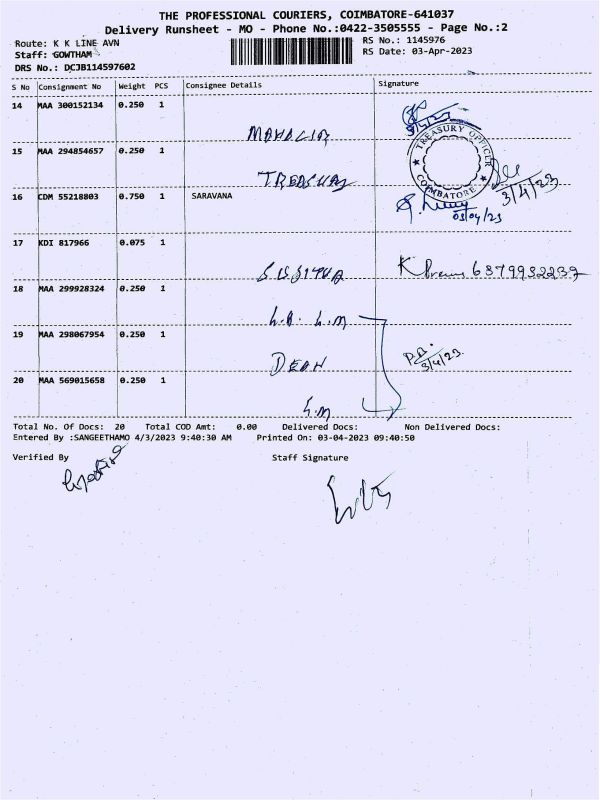 THE PROFESSIONAL COURIERS, COIMBATORE-641037
Delivery Runsheet - MO - Phone No.:0422-3505555 - Page No.:2
Route: K K LINE AVN
RS No.: 1145976
Staff: GOWTHAM
RS Date: 03-Apr-2023
DRS No.: DCJB114597602
S No Consignment No Weight PCS Consignee Details Signature
14 MAA 300152134 0.250 1
TREASURY OFFICER
COIMBATORE
15 MAA 294854657 0.250 1
TREASURY
3/4/23
16 CDM 55218803 0.750 1 SARAVANA
03/04/23
17 KDI 817966 0.075 1
18 MAA 299928324 0.250 1
19 MAA 298067954 0.250 1
DEAN
3/4/23.
20 MAA 569015658 0.250 1
Total No. Of Docs: 20 Total COD Amt: 0.00 Delivered Docs: Non Delivered Docs:
Entered By :SANGEETHAMO 4/3/2023 9:40:30 AM Printed On: 03-04-2023 09:40:50
Verified By Staff Signature